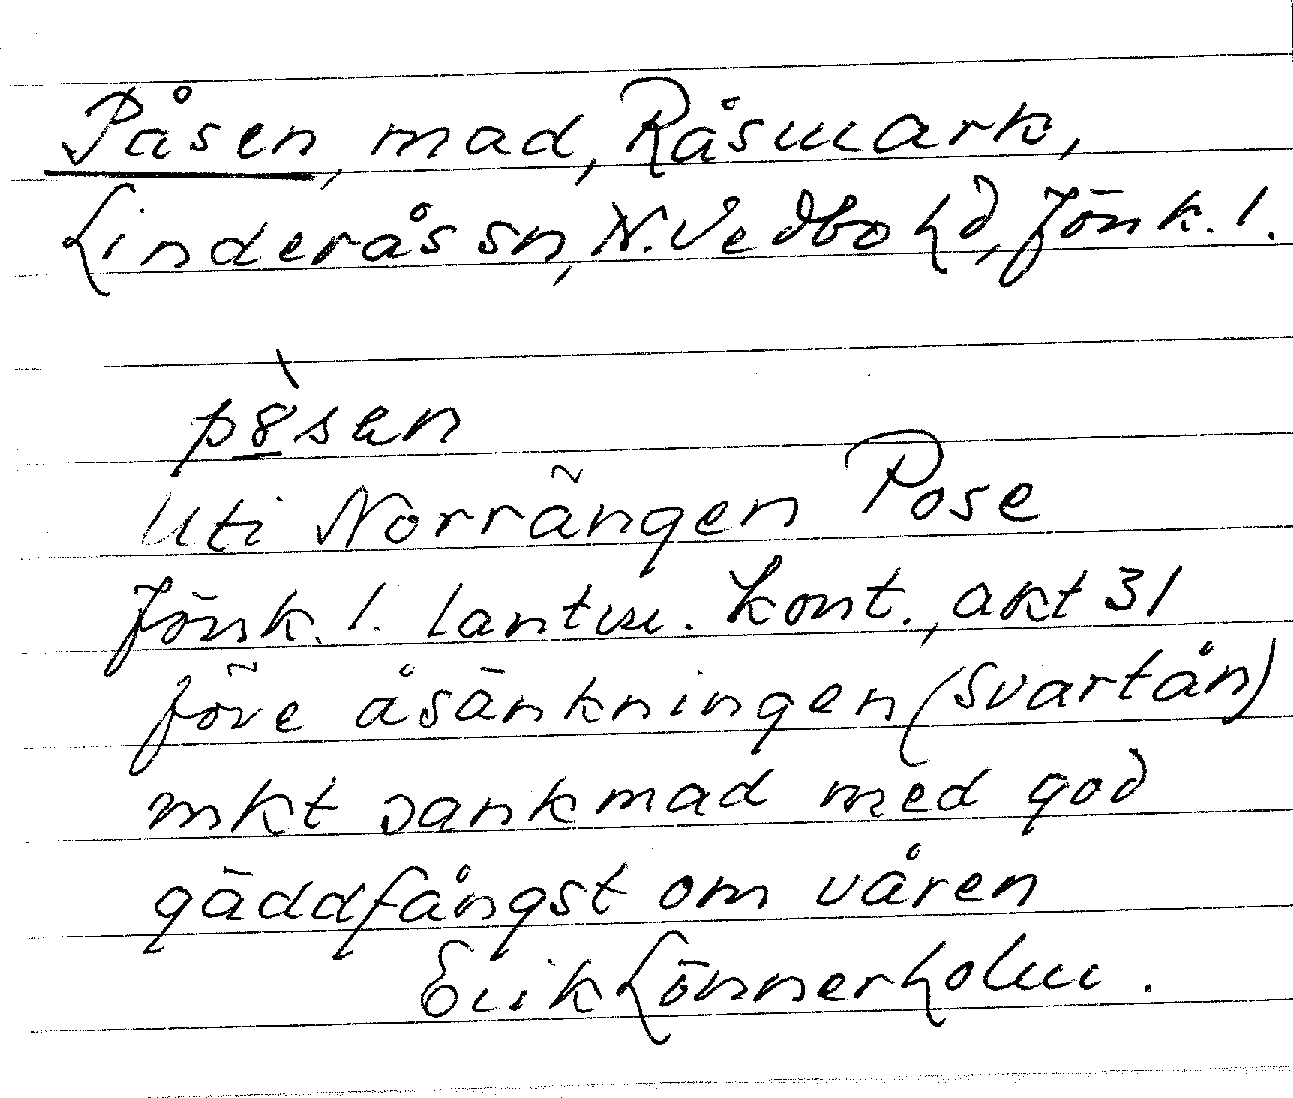 Påsen, mad, Råsmark,
Linderås sn, N. Vedbo hd, Jönk. l.
p8̀sen
Uti Norrängen Pose
Jönk. l. lantm. kont., akt 31
före åsänkningen (Svartån)
mkt sankmad med god
gäddfångst om våren
Erik Lönnerholm.